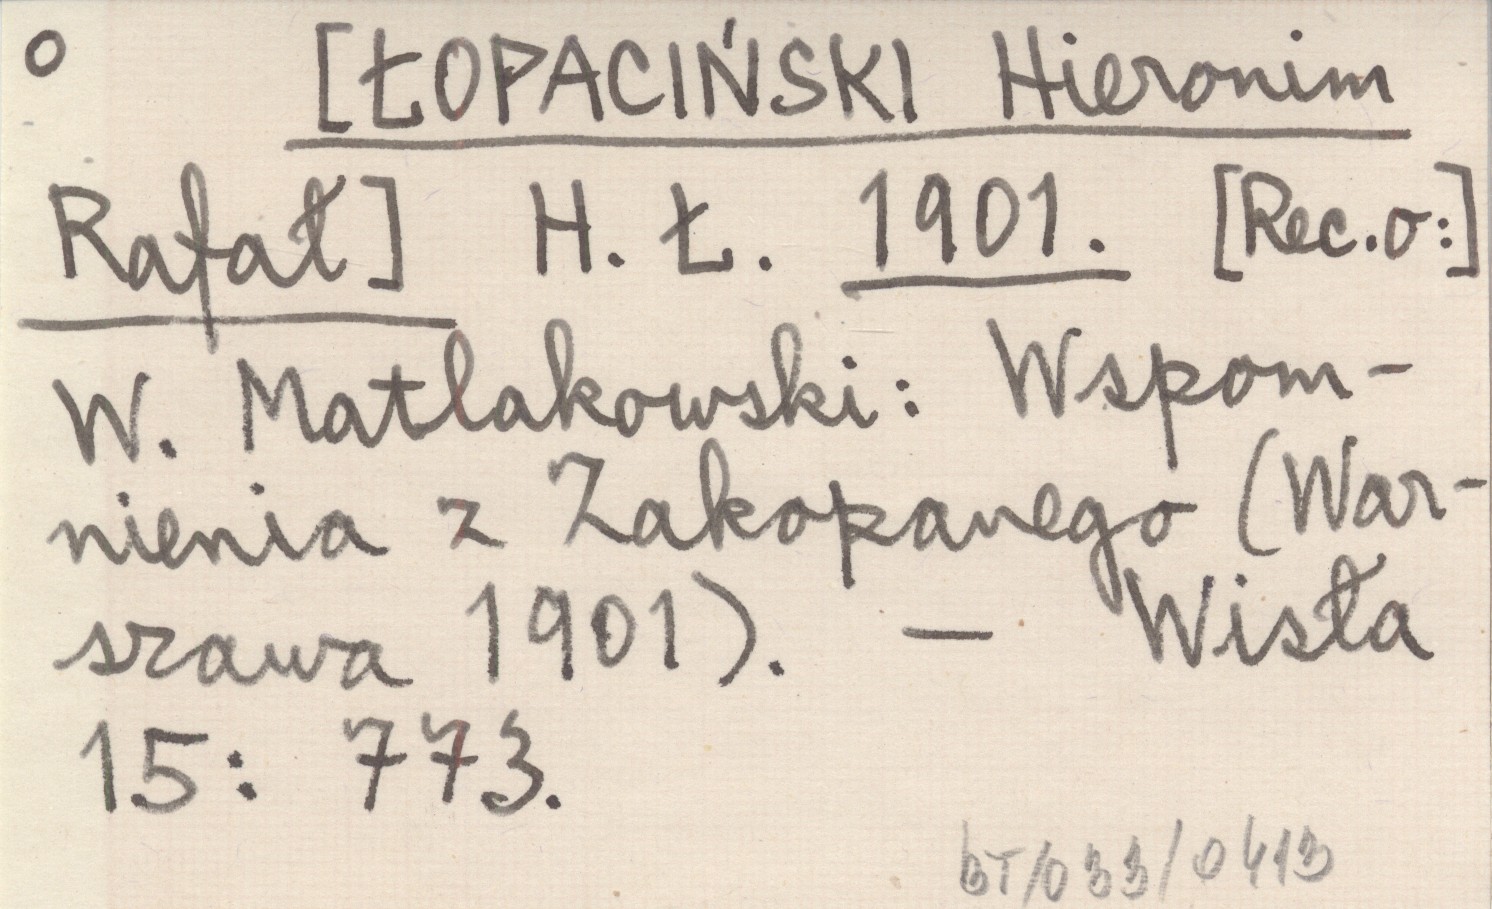 o [ŁOPACIŃSKI Hieronim
Rafał] H. Ł. 1901. [Rec. o:]
W. Matlakowski: Wspom-
nienia z Zakopanego (War-
szawa 1901). — Wisła
15: 773.
BT/033/0413